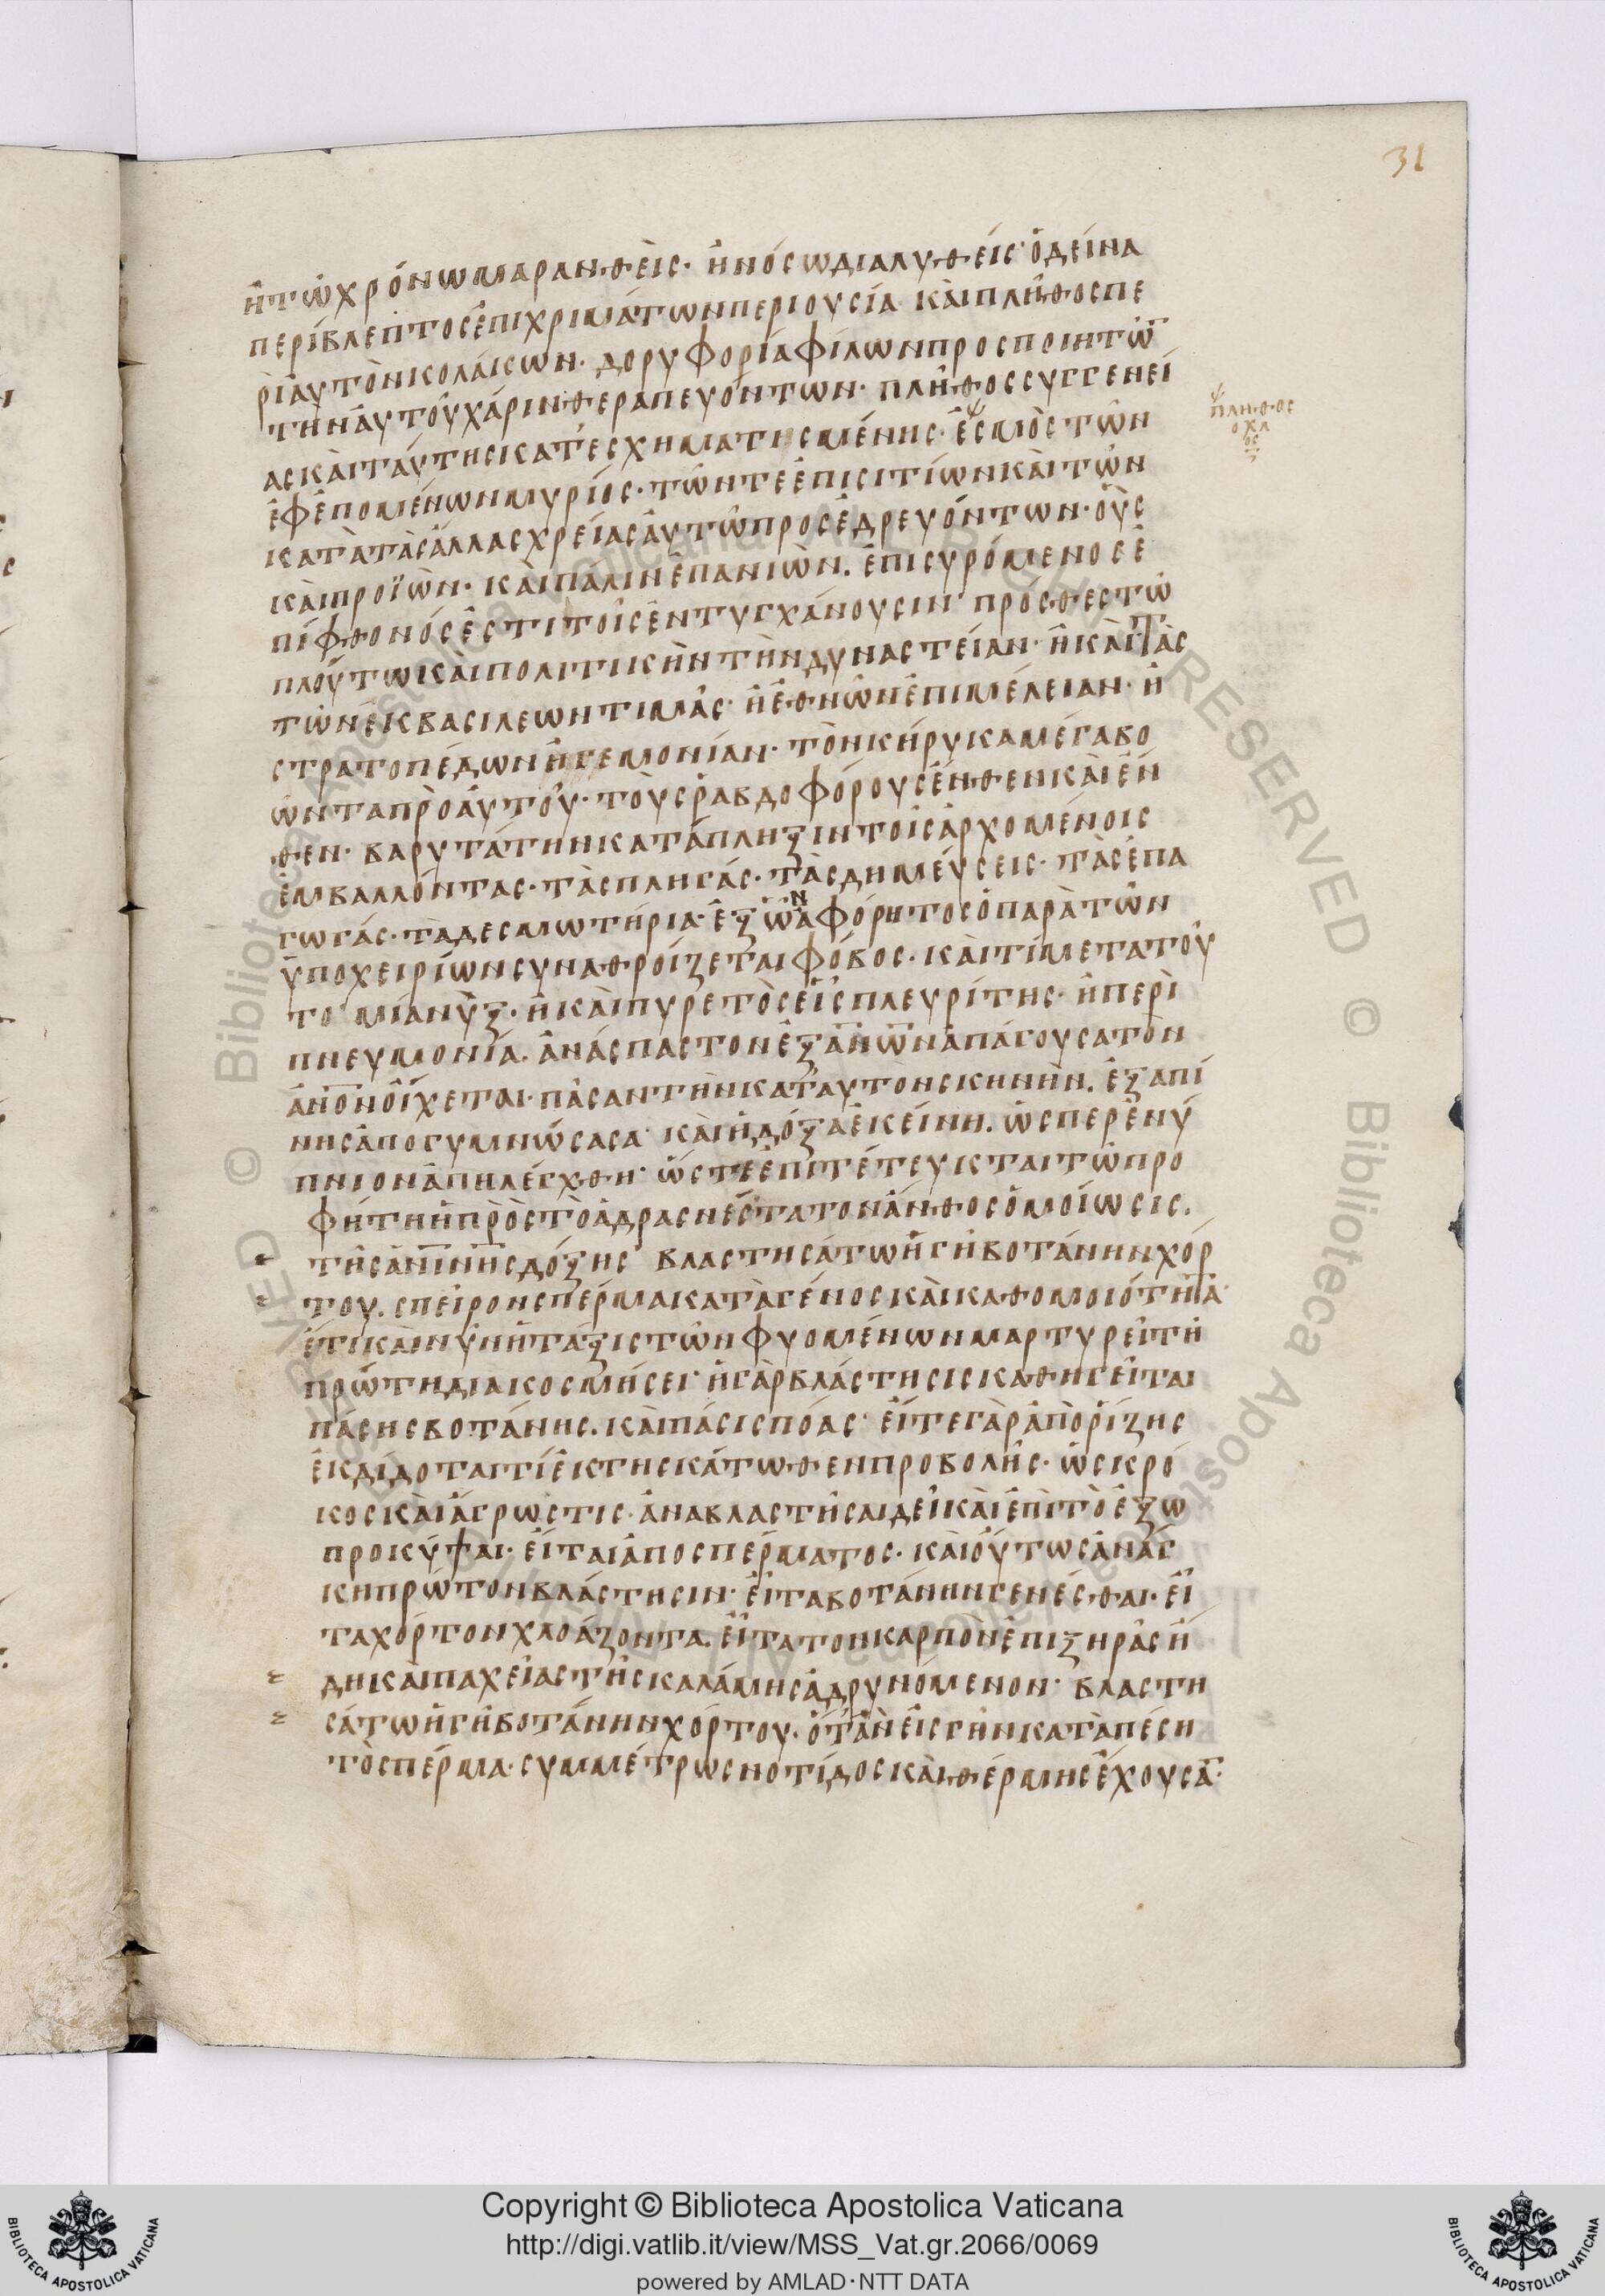 31
ἢ τῷ χρόνω μαρανθεὶς· ἢ νόσω διαλυθείς· ὁ δεῖνα
περίβλεπτος ἐπι χριμάτων περιουσία· καὶ πλῆθος πε
ρὶ αυτὸν κολάκων· δορυφορία φίλων προσποιητῶ̅
τὴν αυτοῦ χάριν θεραπευόντων· πλῆθος συγγενεί
ας καὶ ταύτης κατεσχηματισμένης· ἐσμὸς τῶν
ἐφεπομένων μυρίος· τῶν τε ἐπι σιτίων καὶ τῶν
κατὰ τὰς ἄλλας χρείας αυτῶ προσεδρευόντων· οὓς
καὶ προϊὼν· καὶ πάλιν ἐπανιὼν. ἐπισυρόμενος ἐ
πίφθονός ἐστι τοῖς ἐντυγχάνουσιν· πρόσθες τῶ
πλούτω καὶ πολιτικὴν τὴν δυναστείαν· ἢ καὶ τὰς
τῶν ἐκ βασιλεων τιμὰς· ἢ ἐθνῶν ἐπιμέλειαν· ἢ
στρατοπέδων ἡγεμονίαν· τὸν κήρυκα μέγα βο
ῶντα πρὸ αυτοῦ· τοὺς ῥαβδοφόρους ἔνθεν καὶ ἔν
θεν· βαρυτάτην κατάπληξιν τοῖς ἀρχομένοις
ἐμβαλλόντας· τὰς πληγάς· τὰς δημεύσεις· τὰς ἐπα
γωγάς· τὰ δεσμωτήρια· ἐξ ὧν ἀφόρητος ὁ παρὰ τῶν
ὑποχειρίων συναθροίζεται φόβος· καὶ τί μετα τοῦ
το μία νὺξ· ἢ καὶ πυρετὸς εἷς πλευρίτης· ἢ περὶ
πνευμονία. ἀνάσπαστον ἐξ α̅ν̅ω̅ν ἀπάγουσα τὸν
α̅ν̅ο̅ν οἴχεται· πᾶσαν τὴν κατ αυτὸν σκηνὴν. ἐξαπί
νης ἀπογυμνώσασα· καὶ ἡ δόξα ἐκείνη. ὥσπερ ἐνύ
πνιον ἀπηλέγχθη· ὥστε ἐπιτέτευκται τῶ προ
φήτη ἡ πρὸς τὸ ἀδρανέστατον ἄνθος ὁμοίωσις.
τῆς α̅ν̅ι̅ν̅ης δόξης· βλαστησάτω ἡ γῆ βοτάνην χόρ
του. σπεῖρον σπέρμα κατὰ γένος καὶ καθ ομοιότητα·
ἔτι καὶ νῦν ἡ τάξις τῶν φυομένων μαρτυρεῖ τῆ
πρώτη διακοσμήσει· ἡ γὰρ βλάστησις καθηγεῖται
πάσης βοτάνης. καὶ πάσις πόας· εἴτε γὰρ ἀπὸ ῥίζης
ἐκδίδοταί τί ἐκ της κάτωθεν προβολῆς· ὡς κρό
κος καὶ ἄγρωστις· ἀναβλαστῆσαι δεῖ καὶ ἐπὶ τὸ ἔξω
προκύψαι· εἴται ἀπο σπέρματος· καὶ οὕτως ἀνάγ
κη πρῶτον βλάστησιν· εἶτα βοτάνην γενέσθαι· εἶ
τα χόρτον χλοάζοντα. εἶτα τον καρπὸν ἐπι ξηρᾶς ἤ
δη καὶ παχείας τῆς καλάμης ἁδρυνόμενον· βλαστη
σάτω ἡ γῆ βοτάνην χόρτου. ὅταν εἰς γῆν καταπέση
τὸ σπέρμα· συμμέτρως νοτίδος καὶ θέρμης ἔχουσα̅·
πληθος
οχλ
ος
Copyright © Biblioteca Apostolica Vaticana
http://digi.vatlib.it/view/MSS_Vat.gr.2066/0069
powered by AMLAD · NTT DATA
BIBLIOTECA APOSTOLICA VATICANA
BIBLIOTECA APOSTOLICA VATICANA